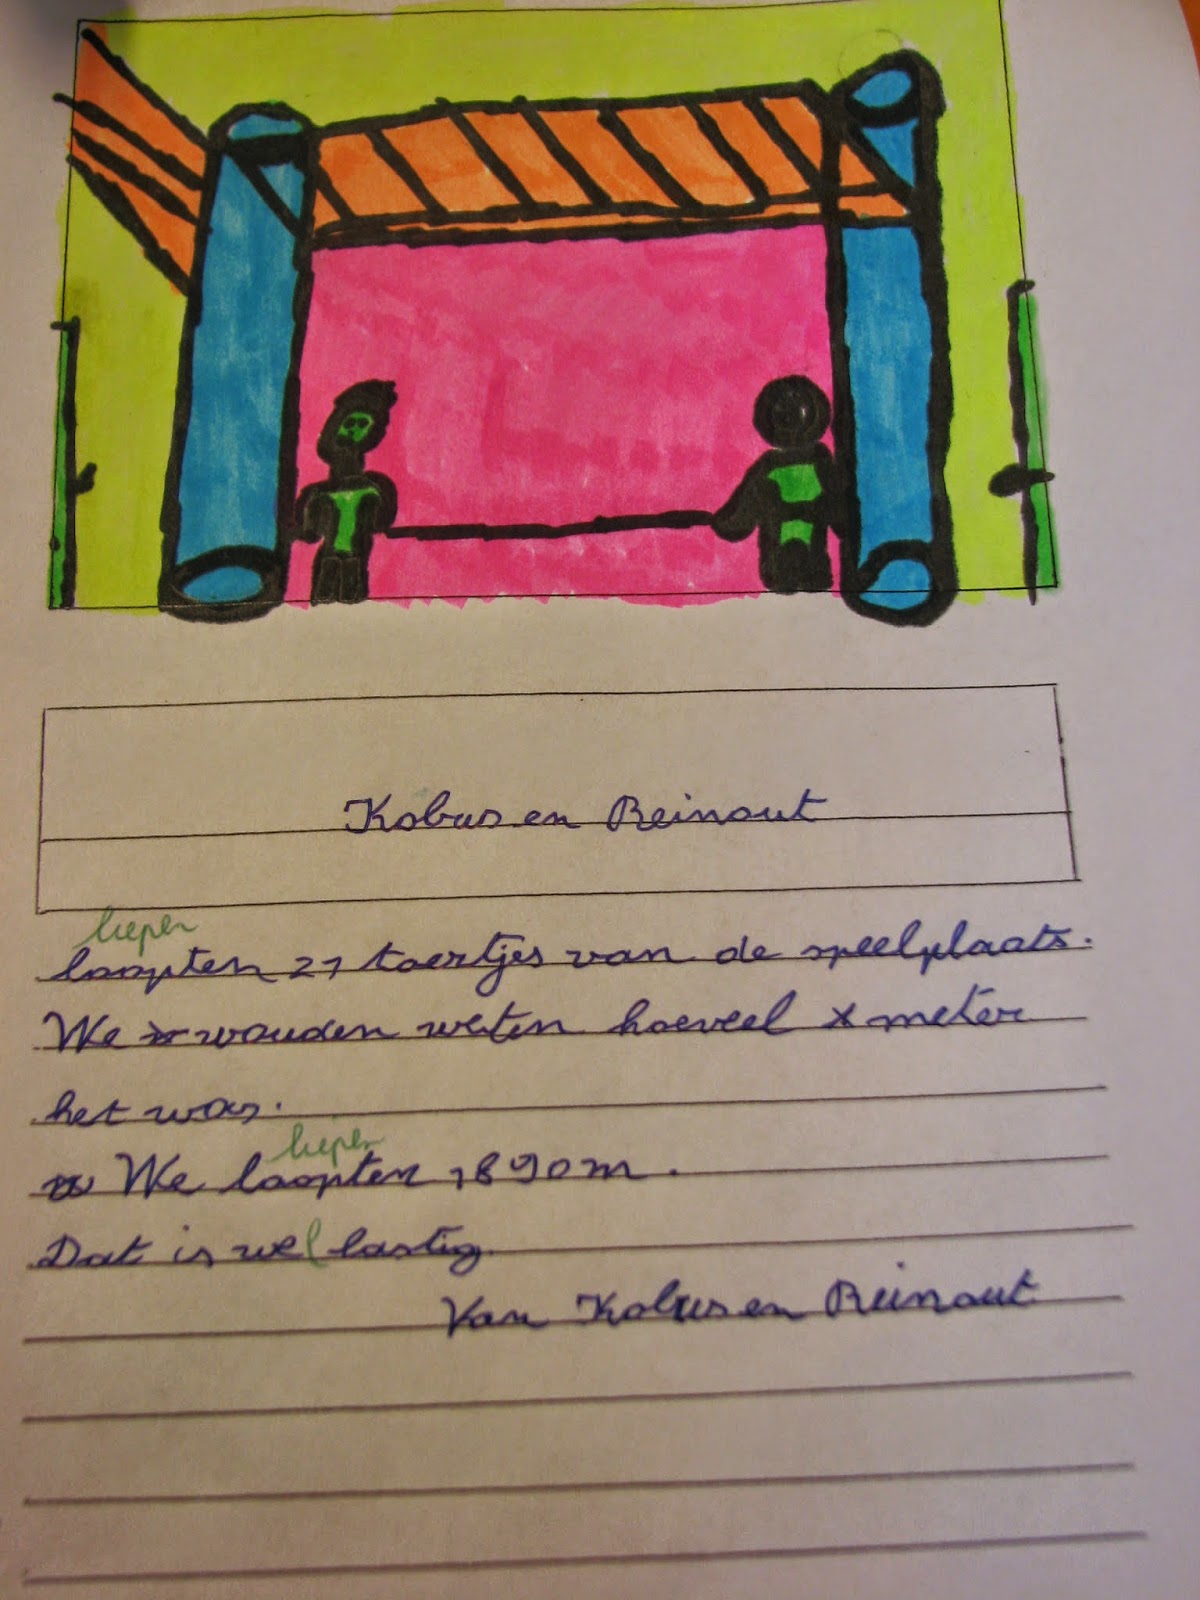 Kobus en Reinout
liepen
loopten 21 toertjes van de speelplaats.
We wouden weten hoeveel meter
het was.
liepen
We loopten 1890m.
Dat is wel lastig.
Van Kobus en Reinout